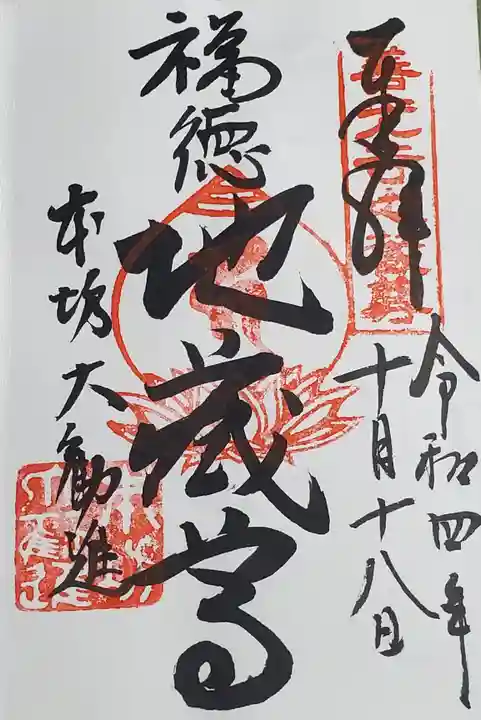 奉拝
令和四年
十月十八日
福徳
地蔵尊
本坊大勧進